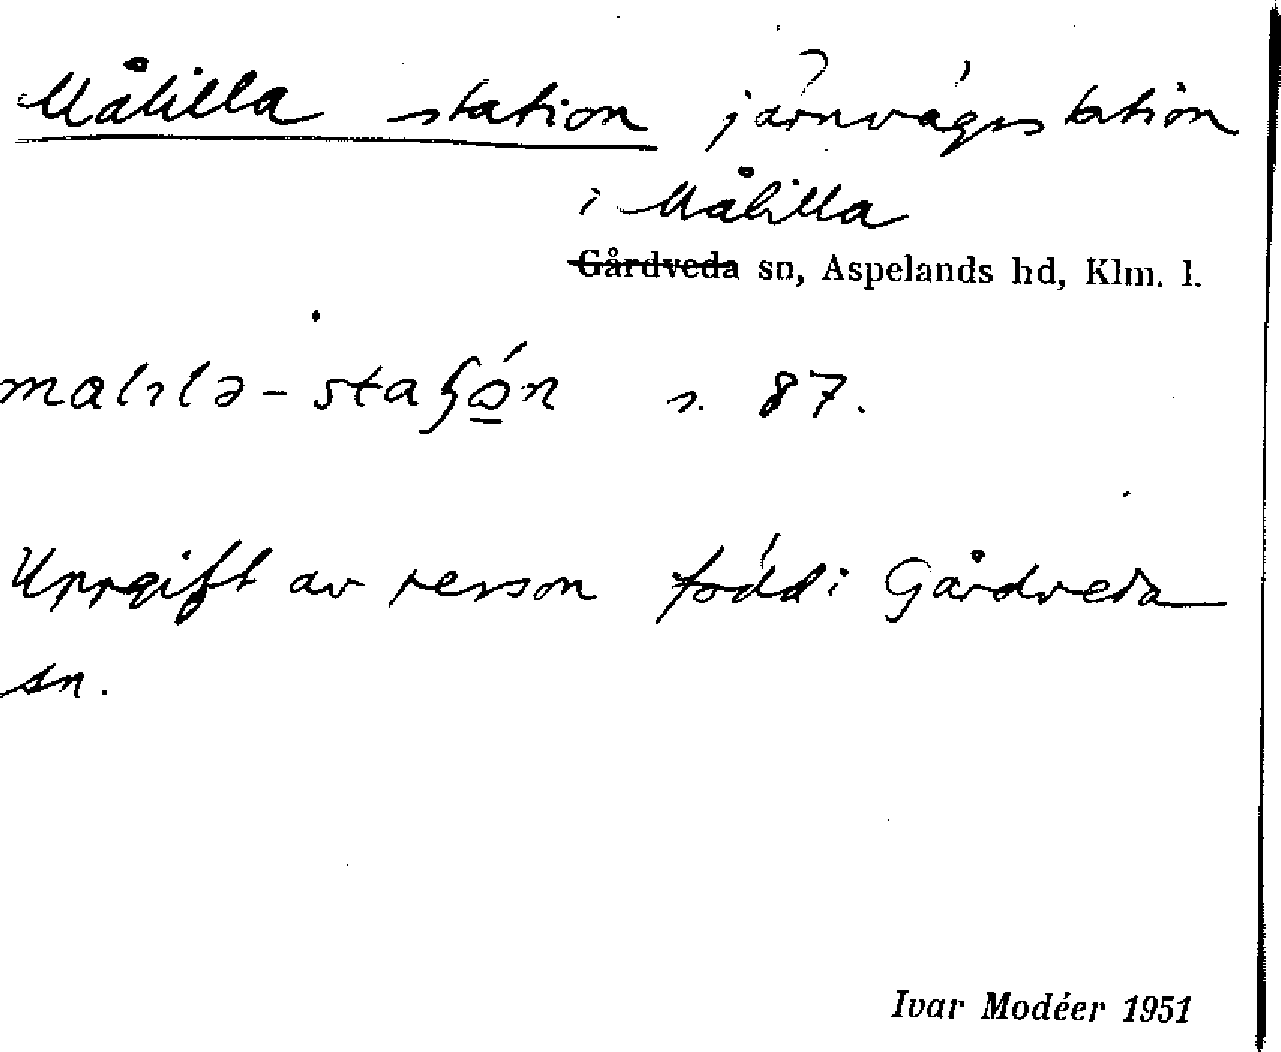 Målilla station järnvägsstation
i Målilla
Gårdveda sn, Aspelands hd, Klm. l.
s. 87.
Uppgift av person född i Gårdveda
sn.
Ivar Modéer 1951